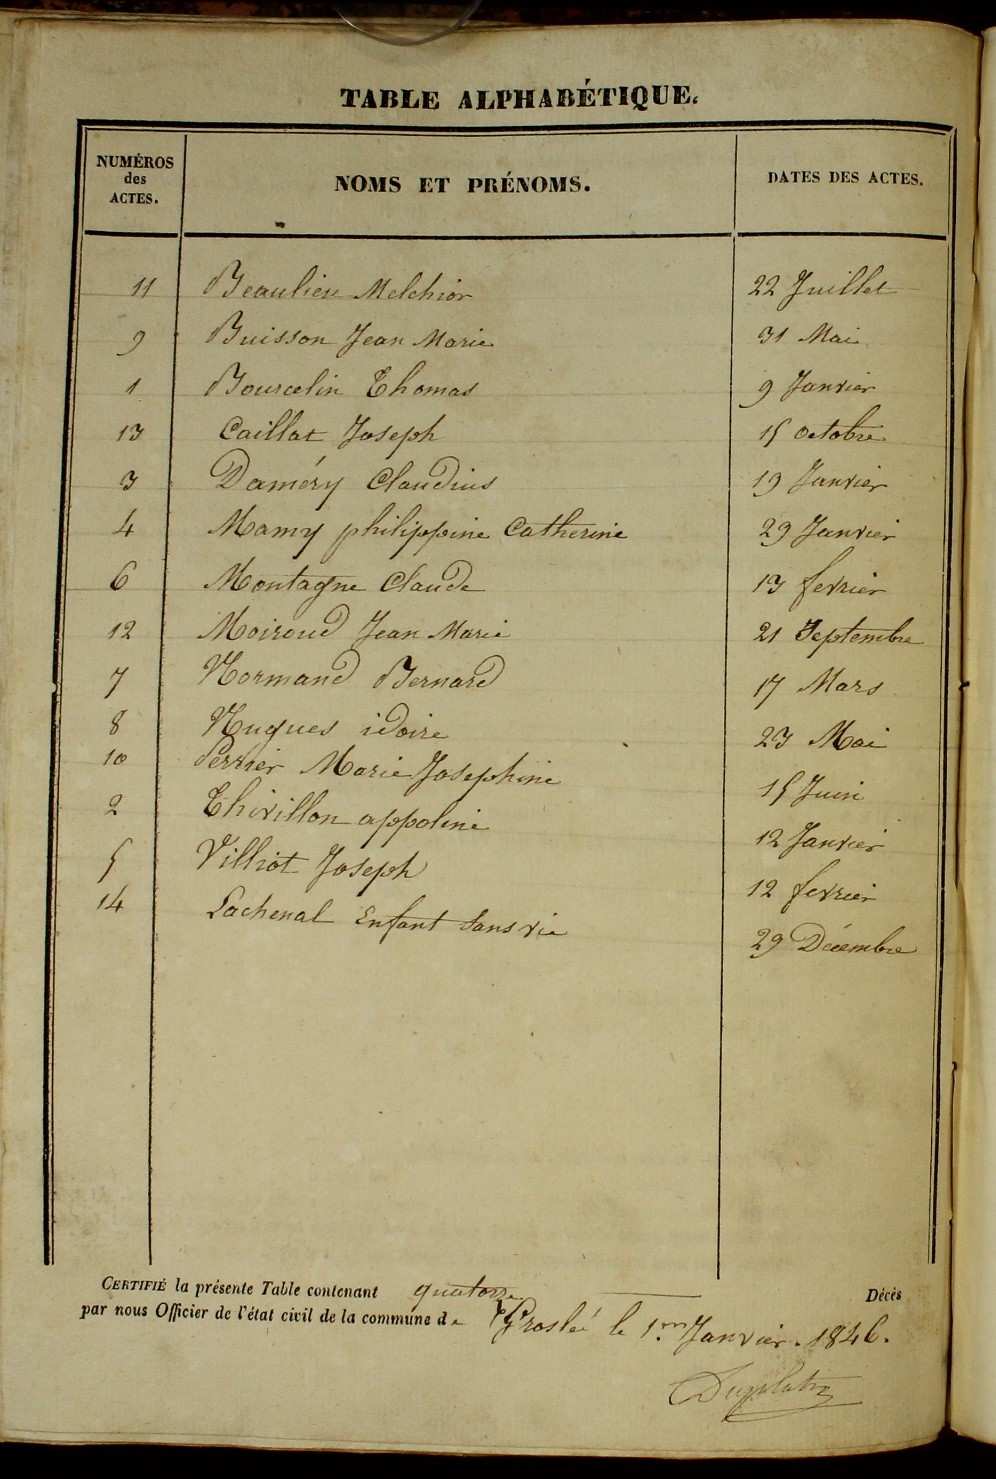 TABLE ALPHABÉTIQUE.
NUMÉROS des ACTES. NOMS ET PRÉNOMS. DATES DES ACTES.
11 Beaulieu Melchior 22 Juillet
9 Buisson Jean Marie 31 Mai
1 Bourcelin Thomas 9 Janvier
13 Caillat Joseph 15 octobre
3 Daméry Claudius 19 Janvier
4 Mamy philippine Catherine 29 Janvier
6 Montagne Claude 13 fevrier
12 Moiroud Jean Marie 21 Septembre
7 Normand Bernard 17 Mars
8 Nugues idoire 23 Mai
10 Perrier Marie Josephine 15 Juin
2 Thivillon appoline 12 Janvier
5 Villiot Joseph 12 fevrier
14 Lachenal Enfant Sans vie 29 Décembre
CERTIFIÉ la présente Table contenant quatorze Décès
par nous Officier de l'état civil de la commune de Groslée le 1er Janvier. 1846.